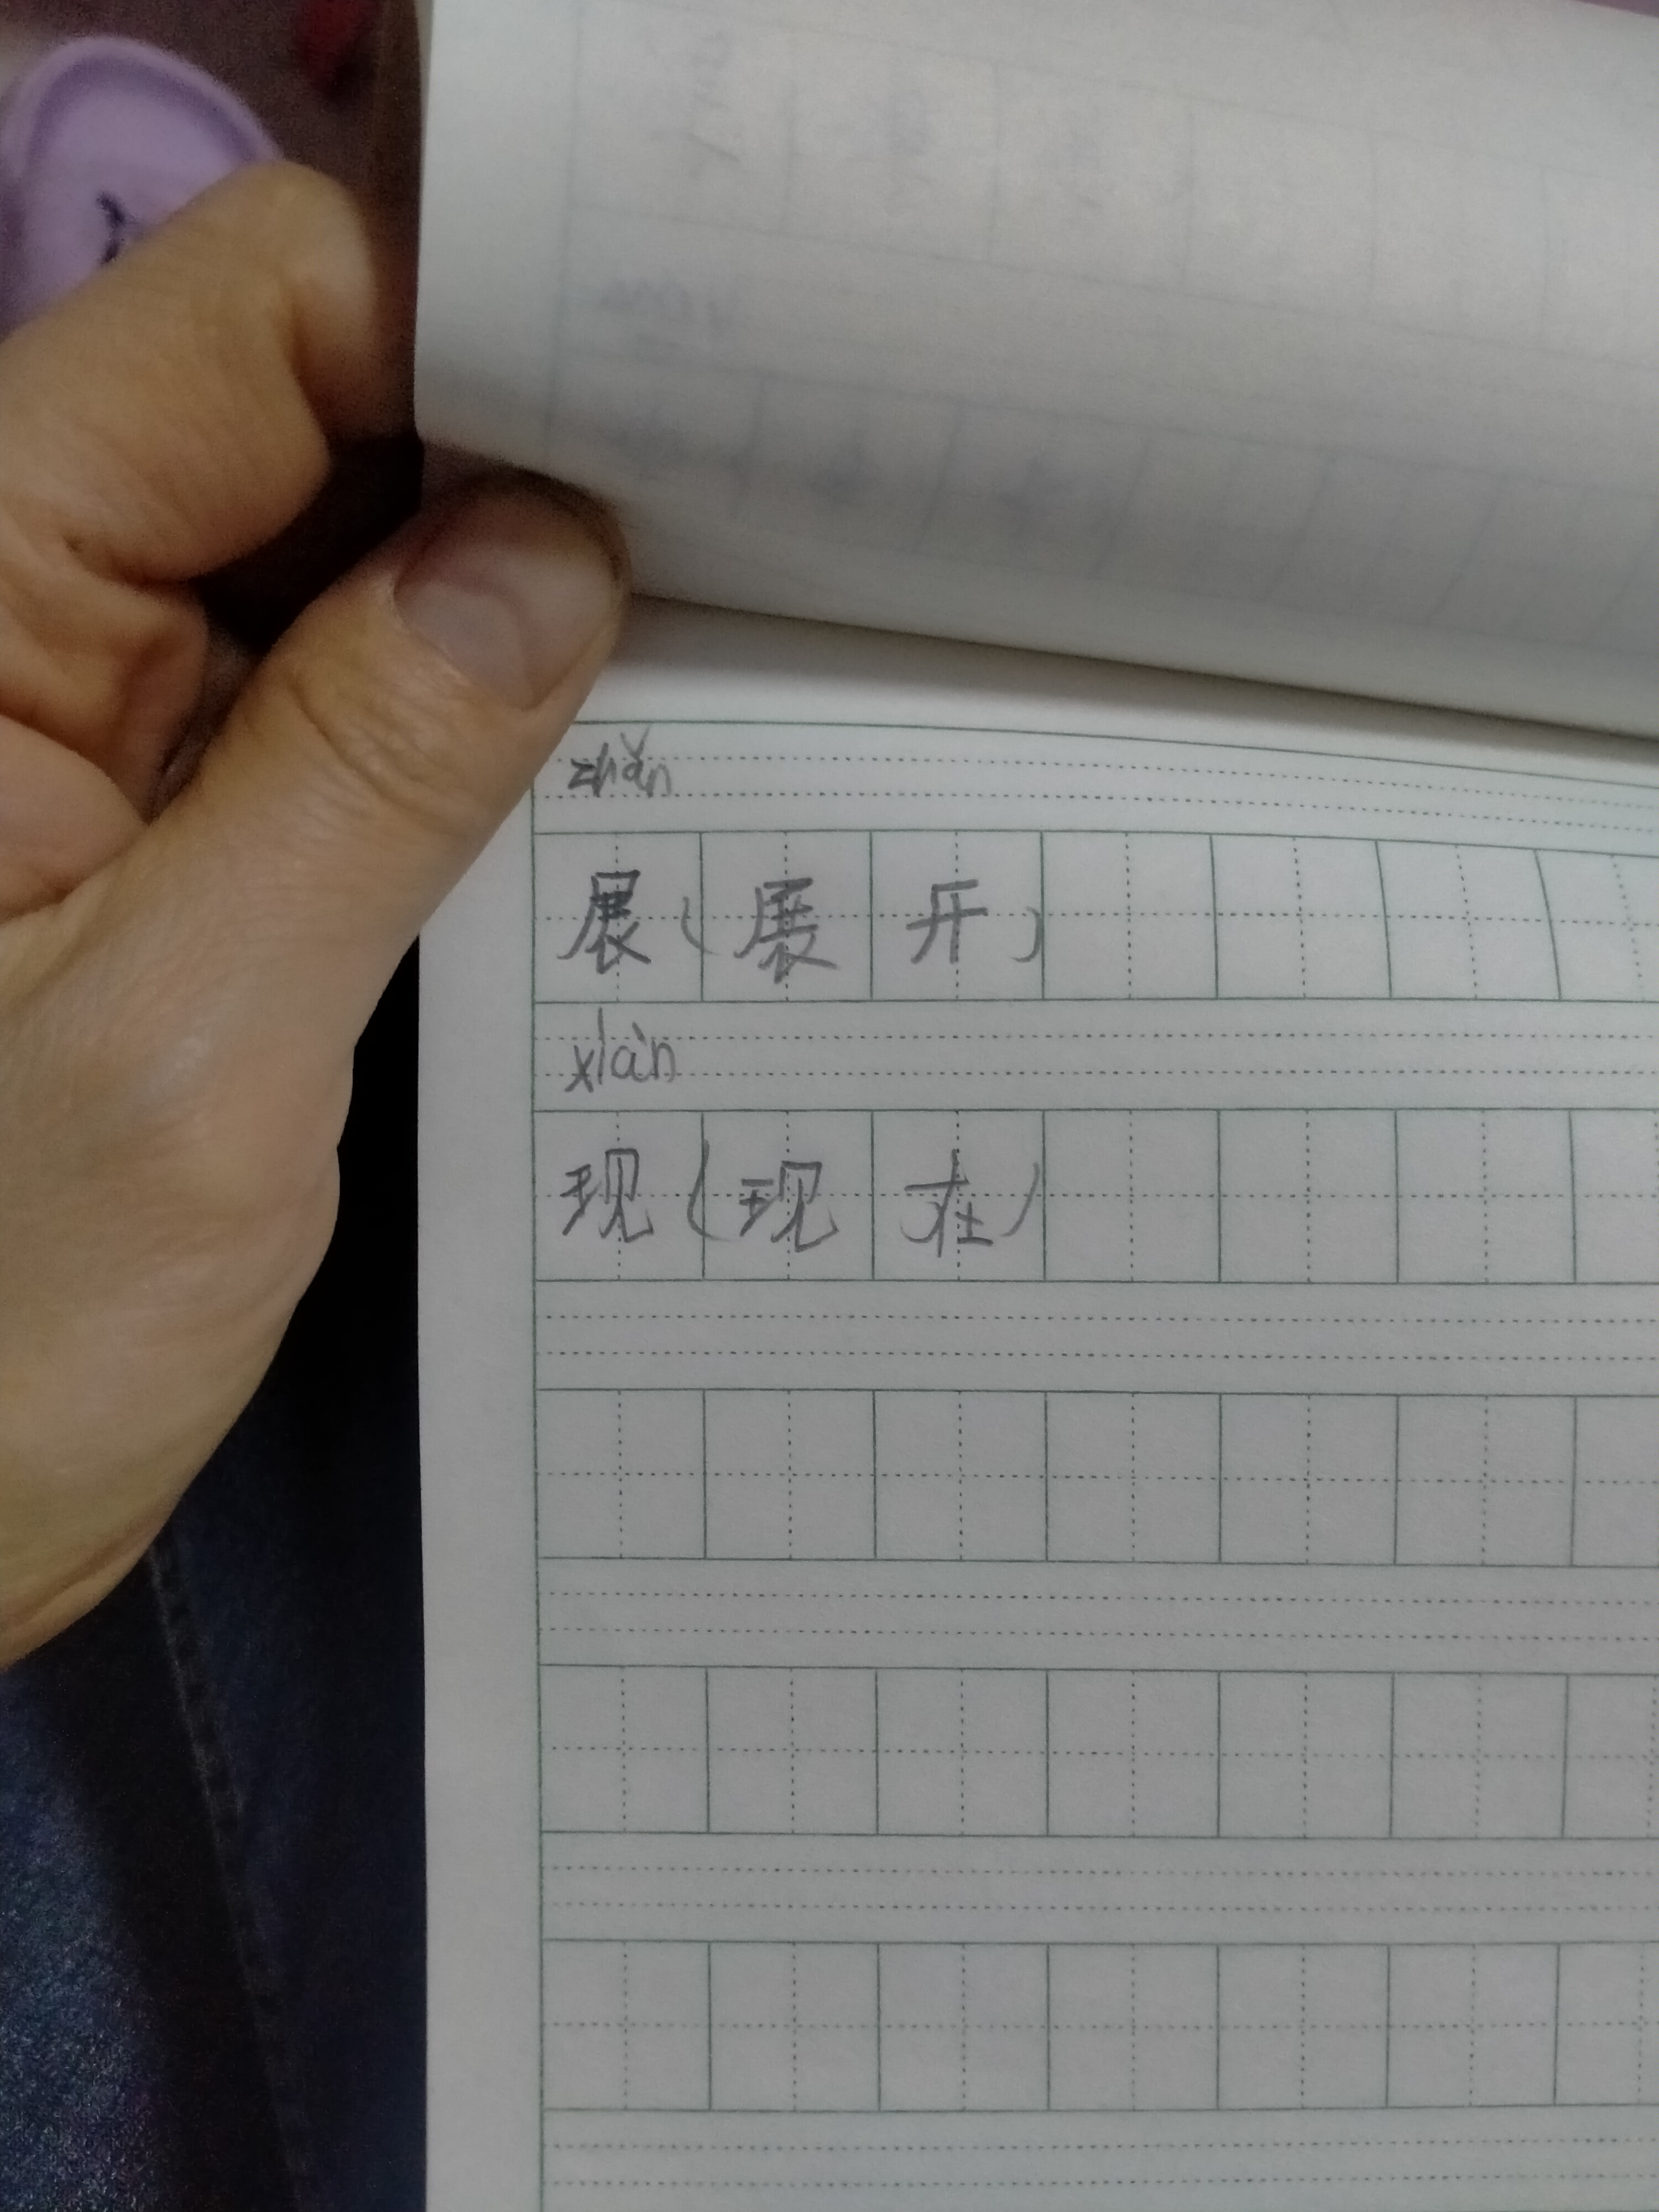 zhǎn
展（展开）
xiàn
现（现在）